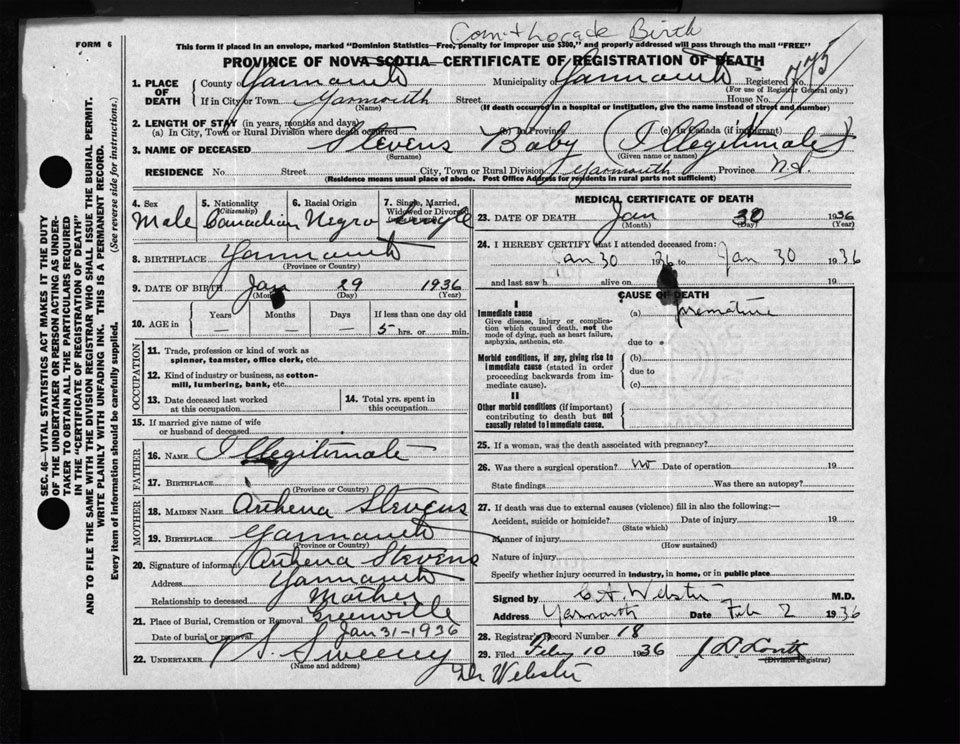 Birth
FORM 6
This form if placed in an envelope, marked "Dominion Statistics—Free, penalty for improper use $300," and properly addressed will pass through the mail "FREE"
PROVINCE OF NOVA SCOTIA—CERTIFICATE OF REGISTRATION OF DEATH
775
1. PLACE OF DEATH
County of Yarmouth Municipality of Yarmouth Registered No.
(For use of Registrar General only)
If in City or Town Yarmouth Street House No.
(Name) (If death occurred in a hospital or institution, give the name instead of street and number)
2. LENGTH OF STAY (in years, months and days)
(a) In City, Town or Rural Division where death occurred (b) In Province (c) In Canada (if immigrant)
3. NAME OF DECEASED Stevens Baby (Illegitimate)
(Surname) (Given name or names)
RESIDENCE No. Street City, Town or Rural Division Yarmouth Province N.S.
(Residence means usual place of abode. Post Office Address for residents in rural parts not sufficient)
4. Sex
Male
5. Nationality
(Citizenship)
Canadian
6. Racial Origin
Negro
7. Single, Married, Widowed or Divorced
Single
8. BIRTHPLACE Yarmouth
(Province or Country)
9. DATE OF BIRTH Jan 29 1936
(Month) (Day) (Year)
10. AGE in
Years Months Days If less than one day old
— — — 5 hrs. or min.
OCCUPATION
11. Trade, profession or kind of work as
spinner, teamster, office clerk, etc.
12. Kind of industry or business, as cotton-
mill, lumbering, bank, etc.
13. Date deceased last worked
at this occupation
14. Total yrs. spent in
this occupation
15. If married give name of wife
or husband of deceased
FATHER
16. NAME Illegitimate
17. BIRTHPLACE
(Province or Country)
MOTHER
18. MAIDEN NAME Stevens
19. BIRTHPLACE Yarmouth
(Province or Country)
20. Signature of informant Stevens
Address Yarmouth
Relationship to deceased Mother
21. Place of Burial, Cremation or Removal Greenville
Date of burial or removal Jan 31-1936
22. UNDERTAKER Sweeny
(Name and address)
Dr Webster
MEDICAL CERTIFICATE OF DEATH
23. DATE OF DEATH Jan 30 1936
(Month) (Day) (Year)
24. I HEREBY CERTIFY that I attended deceased from:
Jan 30 1936 to Jan 30 1936
and last saw h alive on 19
CAUSE OF DEATH
I
Immediate cause
Give disease, injury or complication which caused death, not the mode of dying, such as heart failure, asphyxia, asthenia, etc.
(a) premature
due to
Morbid conditions, if any, giving rise to immediate cause (stated in order proceeding backwards from immediate cause).
(b)
due to
(c)
II
Other morbid conditions (if important) contributing to death but not causally related to immediate cause.
25. If a woman, was the death associated with pregnancy?
26. Was there a surgical operation? no Date of operation 19
State findings Was there an autopsy?
27. If death was due to external causes (violence) fill in also the following:—
Accident, suicide or homicide? Date of injury 19
(State which)
Manner of injury
(How sustained)
Nature of injury
Specify whether injury occurred in industry, in home, or in public place
Signed by Webster M.D.
Address Yarmouth Date Feb 2 1936
28. Registrar's Record Number 18
29. Filed Feby 10 1936
(Division Registrar)
SEC. 46—VITAL STATISTICS ACT MAKES IT THE DUTY
OF THE UNDERTAKER OR PERSON ACTING AS UNDER-
TAKER TO OBTAIN ALL THE PARTICULARS REQUIRED
IN THE "CERTIFICATE OF REGISTRATION OF DEATH"
AND TO FILE THE SAME WITH THE DIVISION REGISTRAR WHO SHALL ISSUE THE BURIAL PERMIT.
WRITE PLAINLY WITH UNFADING INK. THIS IS A PERMANENT RECORD.
Every item of information should be carefully supplied. (See reverse side for instructions.)